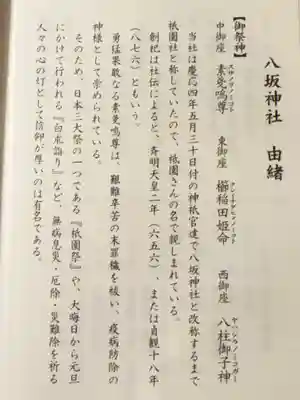 八坂神社　由緒
【御祭神】
スサノヲノミコト
中御座　素戔嗚尊　東御座　櫛稲田姫命　西御座　八柱御子神
クシイナダヒメノミコト
ヤハシラノミコガミ
当社は慶応四年五月三十日付の神祇官達で八坂神社と改称するまで
祇園社と称していたので、祇園さんの名で親しまれている。
創祀は社伝によると、斉明天皇二年（六五六）、または貞観十八年
（八七六）ともいう。
勇猛果敢なる素戔嗚尊は、艱難辛苦の末罪穢を祓い、疫病防除の
神様として崇められている。
そのため、日本三大祭の一つである『祇園祭』や、大晦日から元旦
にかけて行われる『白朮詣り』など、無病息災・厄除・災難除を祈る
人々の心の灯として信仰が厚いのは有名である。